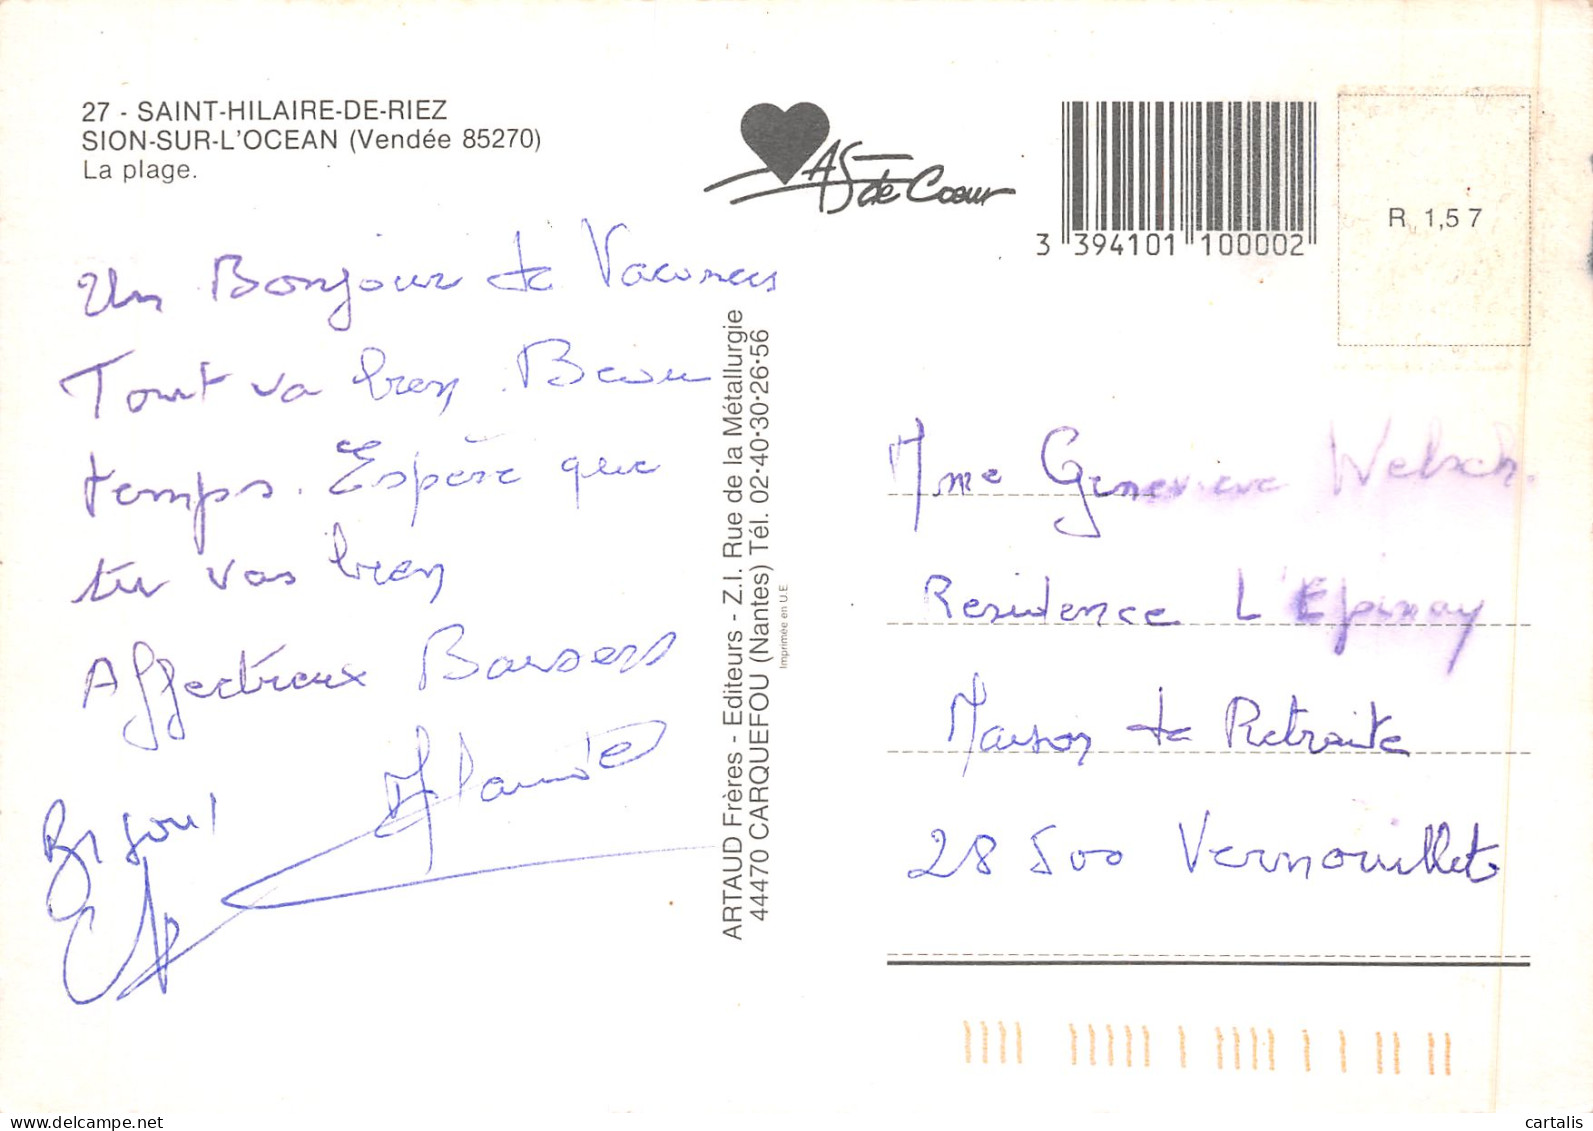 27 - SAINT-HILAIRE-DE-RIEZ
SION-SUR-L'OCEAN (Vendée 85270)
La plage.
AS de Cœur
3 394101 100002
R 1,57
Un Bonjour de Vacances
Tout va bien. Beau
temps. Espère que
tu vas bien
Affectueux Baisers
Bisous
ARTAUD Frères - Editeurs - Z.I. Rue de la Métallurgie
44470 CARQUEFOU (Nantes) Tél. 02·40·30·26·56
Imprimée en U.E
Mme Genevieve Welsch.
Residence L'Epinay
Maison de Retraite
28 500 Vernouillet
delcampe.net
cartalis